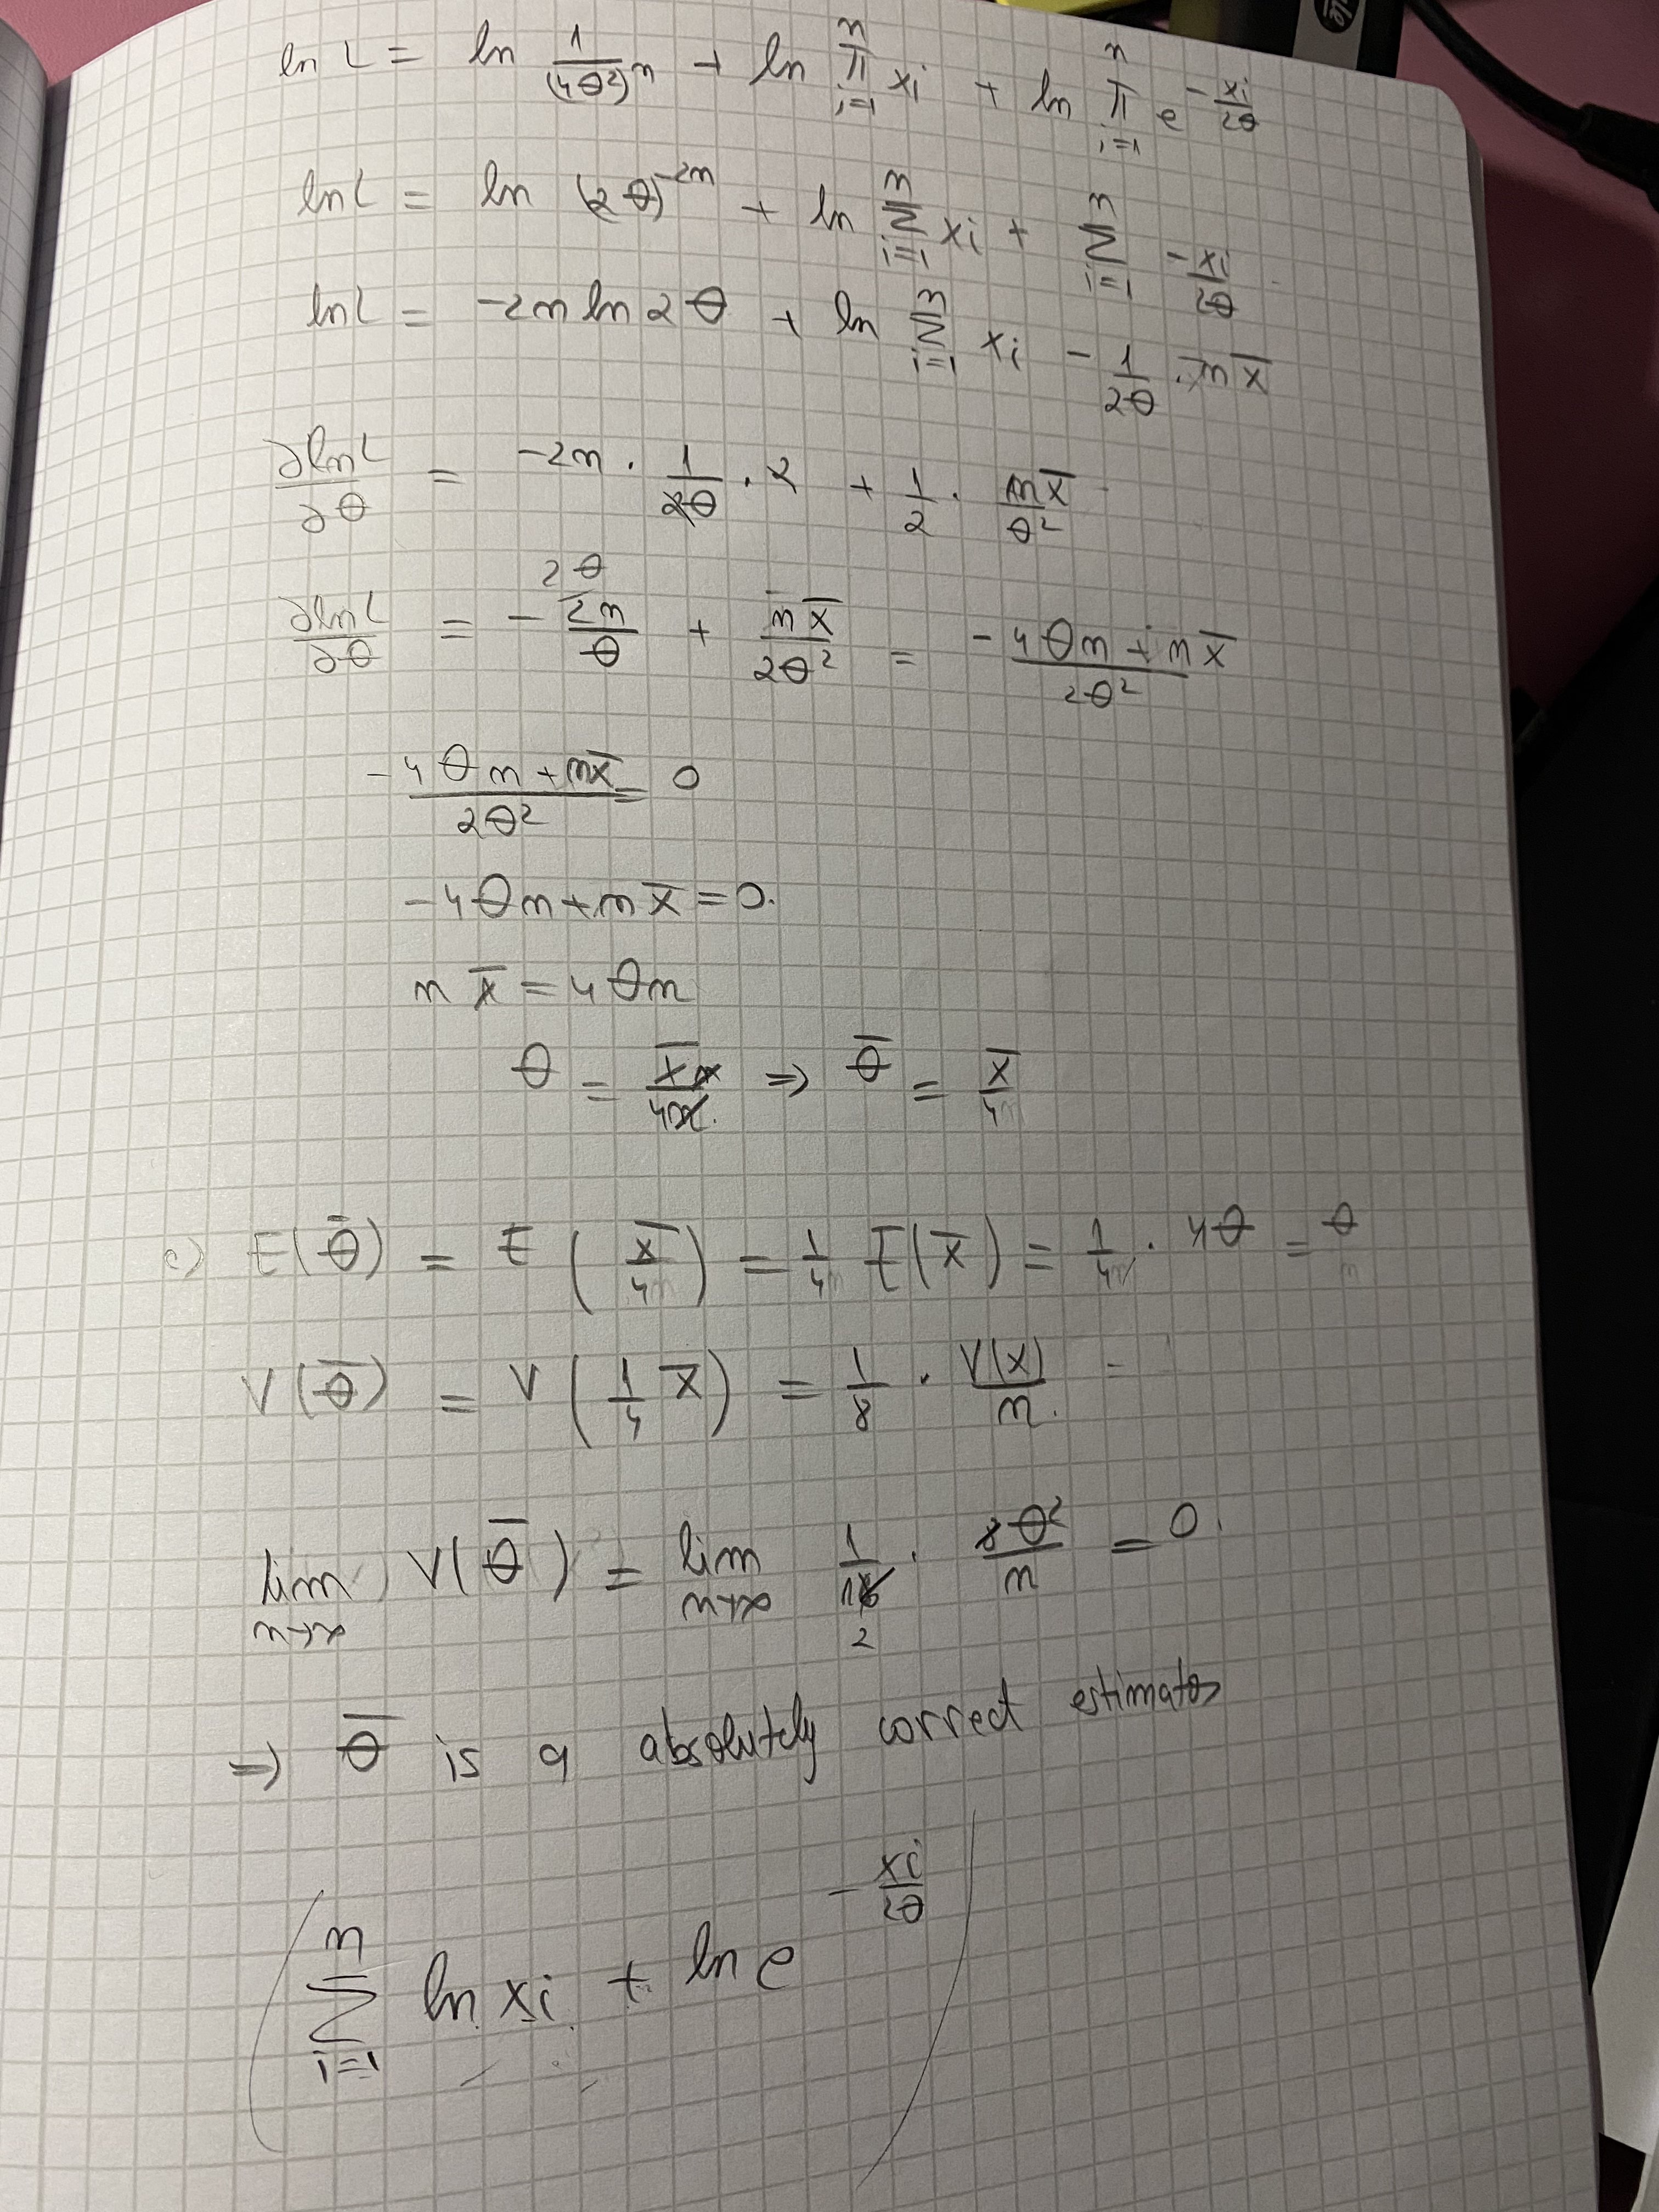 ln L = ln 1/(4θ²)ⁿ + ln ∏ᵢ₌₁ⁿ xi + ln ∏ᵢ₌₁ⁿ e^(-xi/2θ)
ln L = ln (2θ)^(-2n) + ln ∑ᵢ₌₁ⁿ xi + ∑ᵢ₌₁ⁿ -xi/2θ
ln L = -2n ln 2θ + ln ∑ᵢ₌₁ⁿ xi - 1/2θ · n x̄
∂lnL/∂θ = -2n · 1/2θ · 2 + 1/2 · n x̄/θ²
2θ
∂lnL/∂θ = - 2n/θ + n x̄/2θ² = (-4θn + n x̄)/2θ²
(-4θn + n x̄)/2θ² = 0
-4θn + n x̄ = 0.
n x̄ = 4θn
θ = x̄n/4n ⇒ θ̄ = x̄/4
c) E(θ̄) = E(x̄/4) = 1/4 E(x̄) = 1/4 · 4θ = θ
V(θ̄) = V(1/4 x̄) = 1/8 · V(x)/n =
lim n→∞ V(θ̄) = lim n→∞ 1/16 · 8θ²/n = 0
2
⇒ θ̄ is a absolutely correct estimator
( ∑ᵢ₌₁ⁿ ln xi + ln e^(-xi/2θ) )